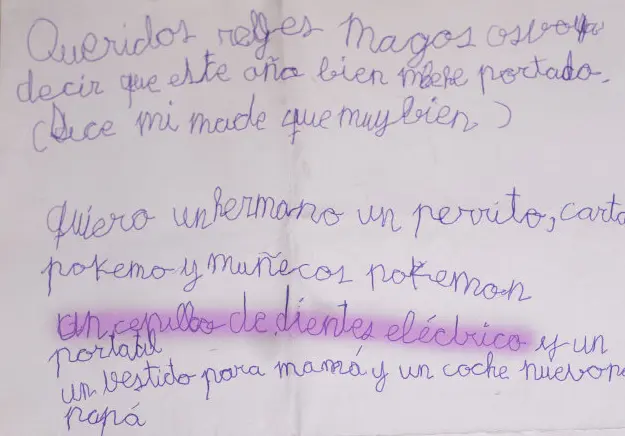 Queridos reyes Magos os voy a
decir que este año bien mhepe portado.
(Dice mi made que muy bien)
quiero un hermano un perrito, carta
pokemo y muñecos pokemon
un cepillo de dientes eléctrico y un
portatil
un vestido para mamá y un coche nuevo pa
papá